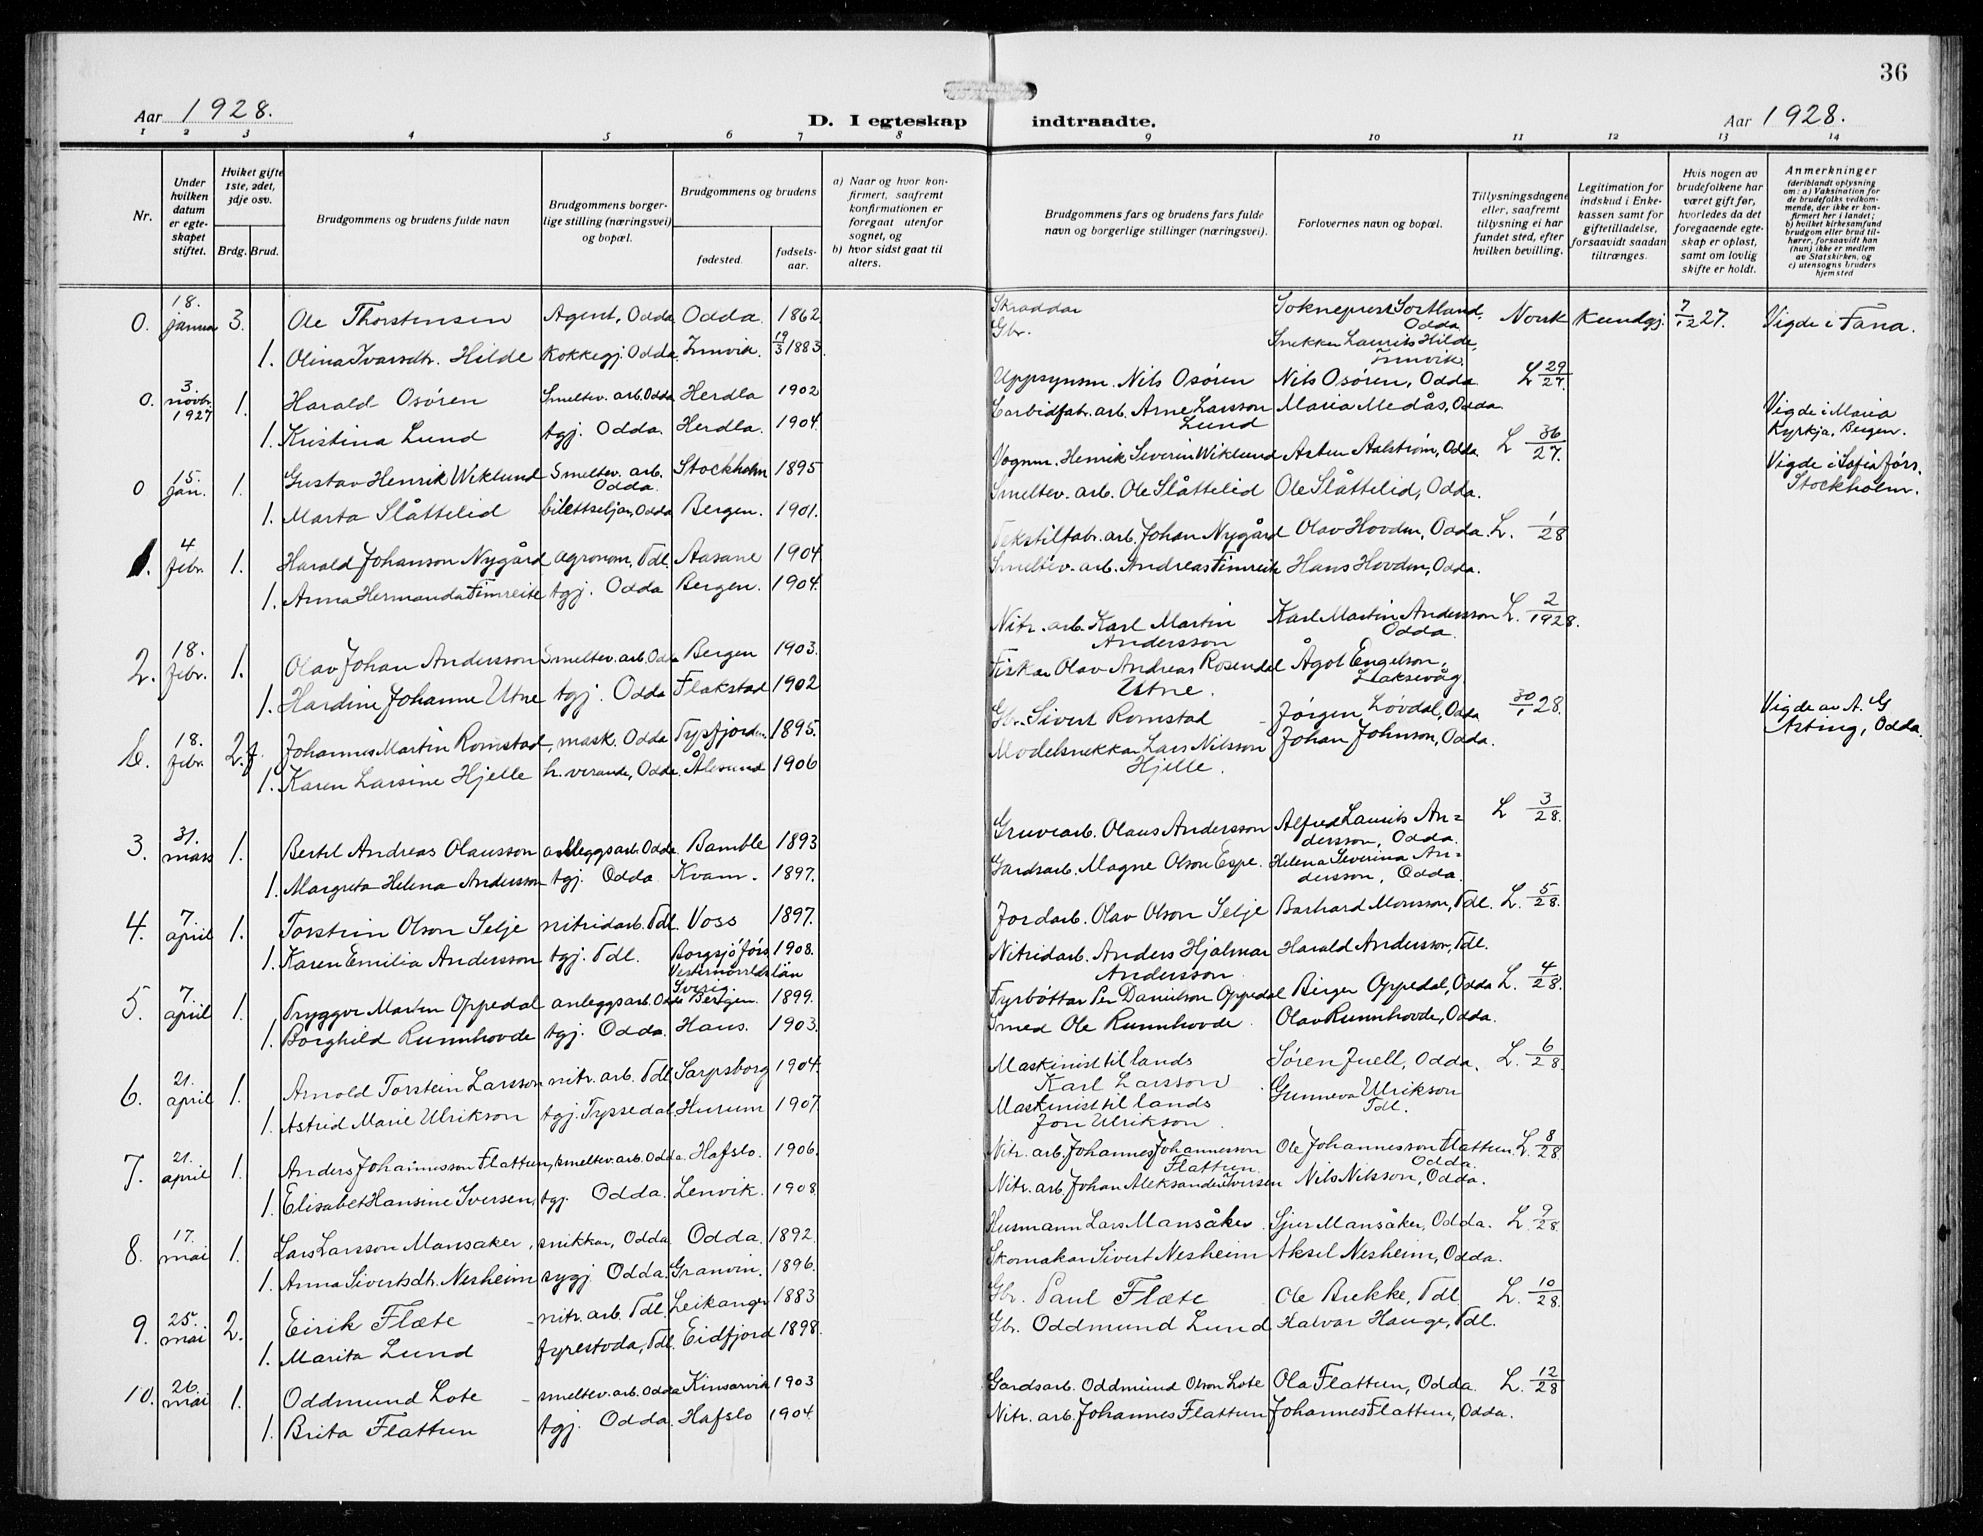 36
Aar 1928.
D. I egteskap indtraadte.
Aar 1928.
1 2 3 4 5 6 7 8 9 10 11 12 13 14
Nr.
Under hvilken datum er egteskapet stiftet.
Hvilket gifte 1ste, 2det, 3dje osv.
Brdg. Brud.
Brudgommens og brudens fulde navn
Brudgommens borgerlige stilling (næringsvei) og bopæl.
Brudgommens og brudens
fødested.
fødselsaar.
a) Naar og hvor konfirmert, saafremt konfirmationen er foregaat utenfor sognet, og
b) hvor sidst gaat til alters.
Brudgommens fars og brudens fars fulde navn og borgerlige stillinger (næringsvei).
Forlovernes navn og bopæl.
Tillysningsdagene eller, saafremt tillysning ei har fundet sted, efter hvilken bevilling.
Legitimation for indskud i Enkekassen samt for giftetilladelse, forsaavidt saadan tiltrænges.
Hvis nogen av brudefolkene har været gift før, hvorledes da det foregaaende egteskap er opløst, samt om lovlig skifte er holdt.
Anmerkninger (deriblandt oplysning om: a) Vaksination for de brudefolks vedkommende, der ikke er konfirmert her i landet; b) hvilket kirkesamfund brudgom eller brud tilhører, forsaavidt han (hun) ikke er medlem av Statskirken, og c) utensogns bruders hjemsted
0. 18. januar 3. Ole Thorstensen Agent, Odda Odda. 1862 Skraddar Sokneprest Sortland, Odda Norsk kundgj. 7/12 27. Vigde i Fana.
1. Olina Ivarsdtr. Hilde kokkegj. Odda Innvik. 19/3 1883. Gbr. Snekker Laurits Hilde, Innvik.
0. 3. novbr. 1927 1. Harald Osøren Smeltev. arb. Odda Herdla 1902 Uppsynsm. Nils Osøren Nils Osøren, Odda. L 29/27.
1. Kristina Lund tgj. Odda. Herdla. 1904. Carbidfabr. arb. Arne Larsson Lund Maria Medås, Odda. Vigde i Maria Kyrkja, Bergen.
0 15. jan. 1. Gustav Henrik Wiklund Smeltev. arb. Odda. Stockholm 1895 Vognm. Henrik Severin Wiklund Asten Aalstrøm, Odda. L 36/27. Vigde i Sofia førs. Stockholm.
1. Marta Slåttelid bilettseljar, Odda Bergen. 1901. Smeltev. arb. Ole Slåttelid Ole Slåttelid, Odda.
1. 4 febr. 1. Harald Johanson Nygård agronom, Tdl. Aasane 1904 Tekstilfabr. arb. Johan Nygård Olav Hovden, Odda. L. 1/28
1. Anna Hermanda Timreite tgj. Odda Bergen. 1904. Smeltev. arb. Andreas Timreite Hans Hovden, Odda.
2. 18. febr. 1. Olav Johan Andersson Smeltev. arb. Odda Bergen 1903. Nitr. arb. Karl Martin Andersson Karl Martin Andersson Odda. L. 2/1928.
1. Hardine Johanne Utne tgj. Odda Flakstad 1902 Fiskar Olav Andreas Rosendel Utne. Ågot Engelson, Laksevåg
b. 18. febr. 2. f. Johannes Martin Romstad, mask. Odda Tysfjorden. 1895. Gbr. Sivert Romstad Jørgen Løvdal, Odda 30/1 28. Vigde av A. G Asting, Odda.
1. Karen Larsine Hjelle h. verande, Odda. Ålesund 1906 Modelsnekkar Lars Nilsson Hjelle. Johan Johnson, Odda.
3. 31. mars 1. Bertil Andreas Olausson anleggsarb. Odda Bamble 1893 Gruvearb. Olaus Andersson Alfred Laurits Andersson, Odda. L 3/28.
1. Margreta Helena Andersson tgj. Odda Kvam. 1897. Gardsarb. Magne Olson Espe. Helena Severina Andersson, Odda.
4. 7. april 1. Torstein Olson Selje nitridarb. Tdl. Voss 1897. Jordarb. Olav Olson Selje Barhard Monsson, Tdl. L. 5/28.
1. Karen Emilia Andersson tgj. Tdl. Borgsjö førs. Vesternorrlds län Sverig. 1908. Nitridarb. Anders Hjalmar Andersson. Harald Andersson, Tdl.
5. 7. april 1. Tryggve Marten Oppedal anleggsarb. Odda Bergen. 1899. Fyrbøttar Per Danielson Oppedal Birger Oppedal, Odda L. 4/28.
1. Borghild Runnhovde tgj. Odda. Haus. 1903. Smed Ole Runnhovde. Olav Runnhovde, Odda.
6. 21. april 1. Arnold Torstein Larsson nitr. arb. Tdl Sarpsborg 1904. Maskinist til lands Karl Larsson Søren Juell, Odda. L. 6/28.
1. Astrid Marie Ulrikson tgj. Tyssedal Hurum 1907. Maskinist til lands Jon Ulrikson. Gunneva Ulrikson Tdl.
7. 21. april 1. Anders Johannesson Flattun, smeltev. arb. Odda. Hafslo. 1906. Nitr. arb. Johannes Johannesson Flattun. Ole Johannesson Flattun. Odda. L. 8/28.
1. Elisabet Hansine Iversen, tgj. Odda. Lenvik. 1908 Nitr. arb. Johan Aleksander Iversen Nils Nilsson, Odda.
8. 17. mai 1. Lars Larsson Mansaker, snikkar, Odda Odda. 1892. Husmann Lars Mansåker Sjur Mansåker, Odda. L. 9/28
1. Anna Sivertsdtr. Nesheim sygj. Odda. Granvin. 1896. Skomakar Sivert Nesheim Aksel Nesheim, Odda.
9. 25. mai 2. Eirik Flæte nitr. arb. Tdl. Leikanger 1883 Gbr. Paul Flæte Ole Brekke, Tdl L. 10/28.
1. Marita Lund fyrestoda, Tdl. Eidfjord 1898. Gbr. Oddmund Lund Halvar Hauge, Tdl.
10. 26. mai 1. Oddmund Lote smeltev. arb. Odda Kinsarvik 1903 Gardsarb. Oddmund Olson Lote Ola Flattun, Odda. L. 12/28
1. Brita Flattun tgj. Odda. Hafslo 1904. Nitr. arb. Johannes Flattun Johannes Flattun, Odda.